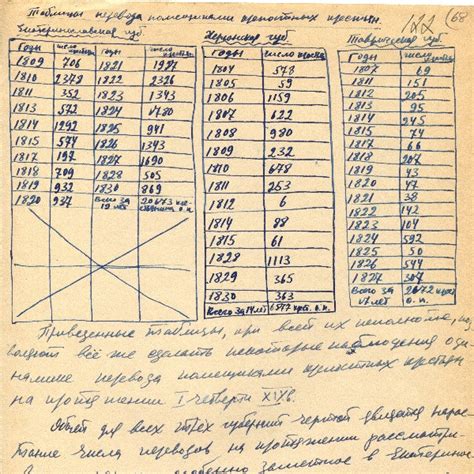 Таблицы перевода помещиками крепостных крестьян.
(68)
Екатеринославская губ.
Херсонская губ.
Таврическая губ.
Годы число Годы число
1809 706 1821 1921
1810 2378 1822 2326
1811 352 1823 1343
1813 572 1824 4780
1814 1292 1825 941
1815 574 1826 1343
1817 197 1827 1690
1818 709 1828 505
1819 932 1830 869
1820 937 Всего за 19 лет
Годы число
1804 578
1805 59
1806 1159
1807 622
1808 980
1809 232
1810 678
1811 253
1812 6
1814 88
1815 61
1828 1113
1829 365
1830 363
Всего за 14 лет
Годы число
1807 69
1811 151
1812 205
1813 95
1814 245
1815 74
1817 66
1818 207
1819 43
1820 47
1821 38
1822 142
1823 104
1824 592
1825 50
1826 544
1827 307
Всего за 17 лет
Приведенные таблицы, при всей их неполноте, поз-
воляют всё же сделать некоторые наблюдения о ди-
намике перевода помещиками крепостных крестьян
на протяжении I четверти XIX в.
Общей для всех трёх губерний чертой является нарас-
тание числа переводов на протяжении рассматри-
особенно заметное в Екатерино-